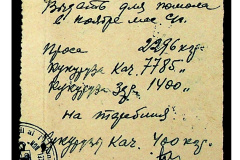 Выдать для помола
в ноябре мес. с/г.
Проса 2296 кгр.
Кукуруза Кач. 7785 "
Кукуруза Зер. 1400 "
на
Кукуруза Кач. 400 кгр.